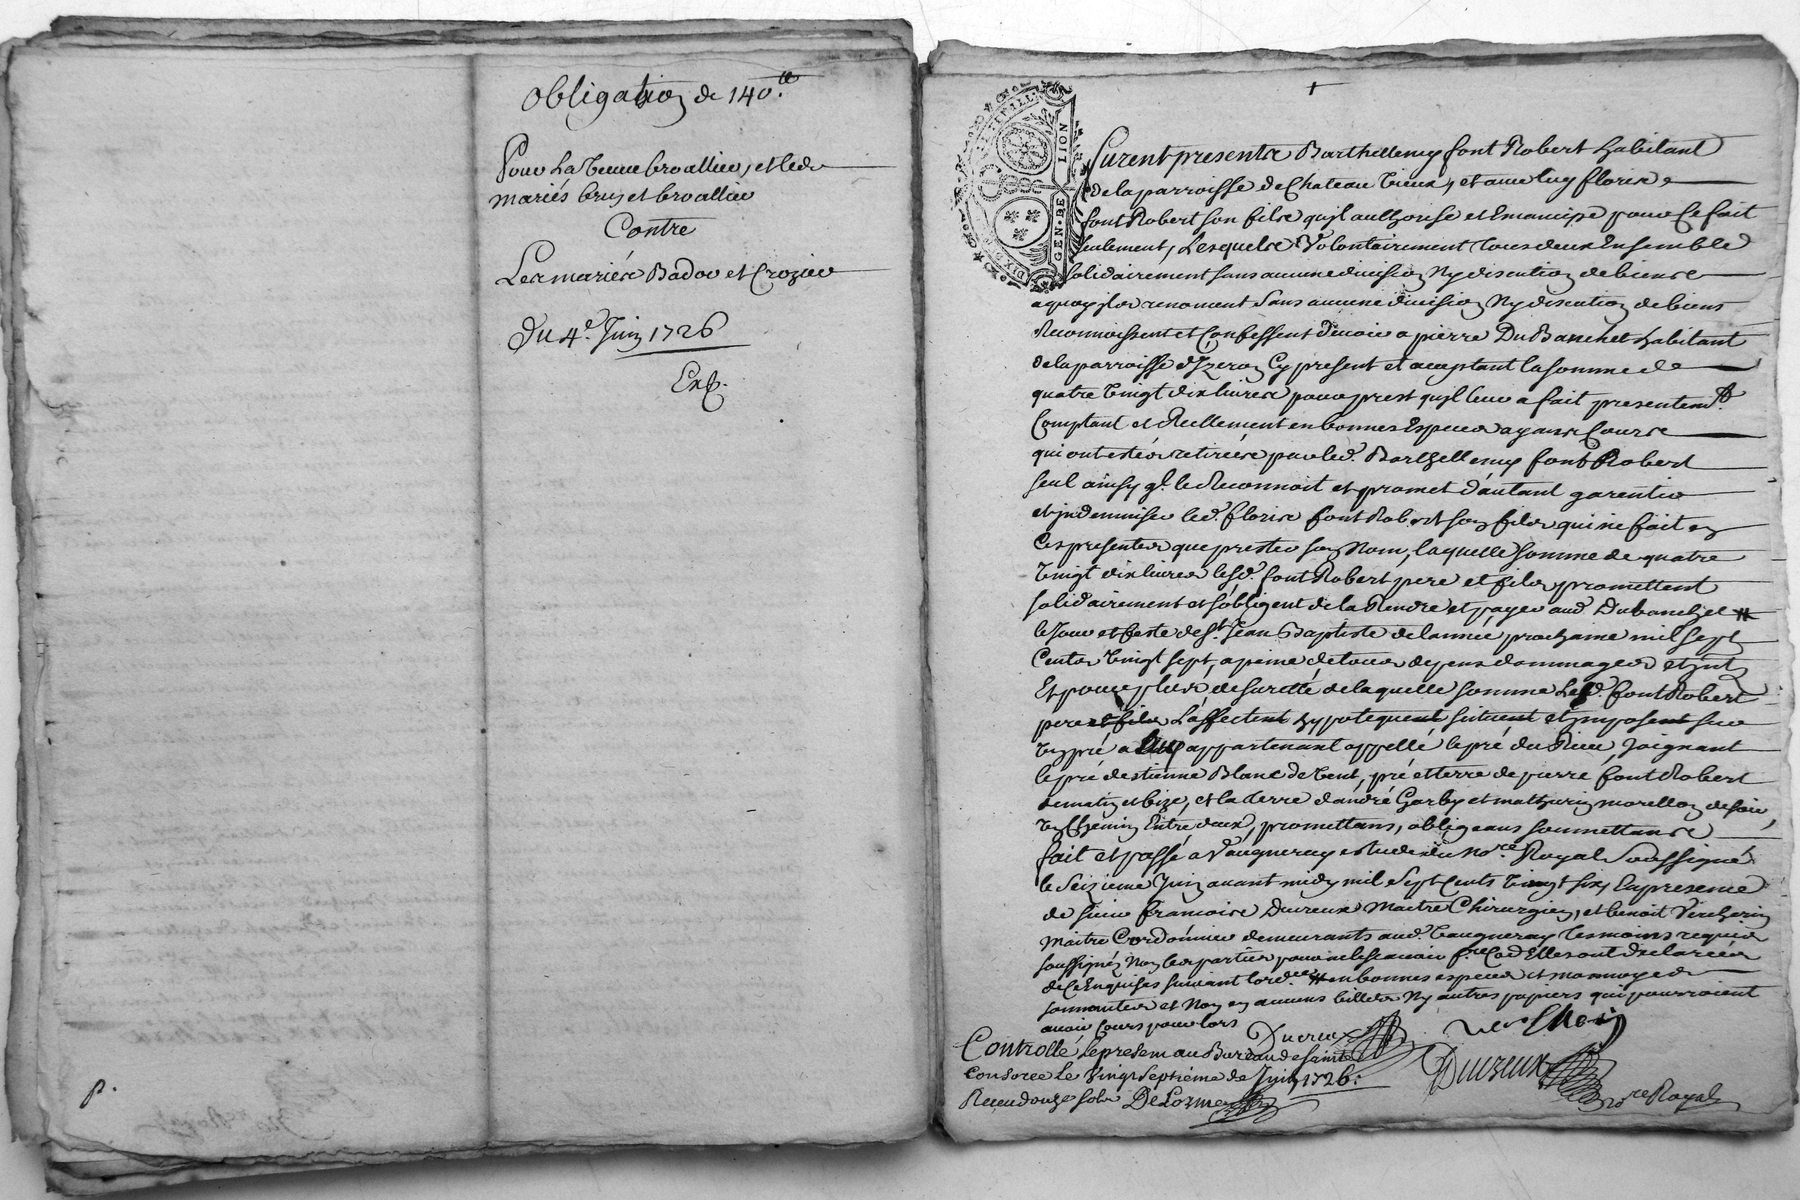 Obligation de 140.ll
Pour La veuve broallier, et led.
mariés bruy et broallier
Contre
Les mariés Badou et Crozier
Du 4.e Juin 1726
Exp.
p.
GEN. DE LION
DIX DE
Furent presents Barthellemy font Robert habitant
de la parroisse de Chateau vieux, et avec luy floris
font Robert son fils quyl authorise et Emancipe pour Ce fait
seulement, Lesquels Volontairement tous deux Ensemble
solidairement sans aucune division Ny discution de biens
a quoy jls renoncent Sans aucune division Ny discution de biens
Reconnoissent et Confessent devoir a pierre Du Banchet habitant
de la parroisse d'Izeron Cy present et aceptant la somme de
quatre vingt dix livres pour prest quyl leur a fait presentemt.
Comptant et Reellement en bonnes Especes ayants Cours
qui ont estés retirées par led. Barthellemy font Robert
seul ainsy ql. le Reconnoit et promet d'autant garentir
et jndemniser led. floris font Robert son fils qui ne fait en
Ces presentes que prester son Nom, laquelle somme de quatre
vingt dix livres lesd. font Robert pere et fils promettent
solidairement et s'obligent de la Rendre et payer aud. Dubanchet #
le Jour et feste de St. Jean Baptiste de l'année prochaine mil sept
Cents vingt sept, a peine de tous depens dommages et jnts
Et pour plus de sureté de laquelle somme Led. font Robert
pere et fils L'affectent hypotequent situent et jmposent sur
un pré a luy appartenant appellé le pré du Rieu Joignant
le pré d'estienne Blanc de vent, pré et terre de pierre font Robert
de matin et bize, et la terre d'andré Garby et mathurin morellon de soir,
un Chemin Entre deux, promettans, obligeans soumettans
fait et passé a Vaugneray estude du No.re Royal Soussigné
le Seizieme Juin avant midy mil Sept Cents vingt six En presence
de sieur francois Ducreux Maitre Chirurgien, et benoit Vercherin
Maitre Cordonnier demeurants aud. Vaugneray temoins requis
soussignés Non les parties pour ne le scavoir f.re Co.e Elles ont declarées
de Ce Enquises suivant lord.ce # en bonnes especes et monnoyes
sonnantes et Non en aucuns billets Ny autres papiers qui pourroient
avoir Cours pour lors
Ducreux
Ducreux
no.re Royal
Controllé le present au Bureau de sainte
Consorce Le Vingt Septiéme de Juin 1726.
Receu douze sols DeLorme